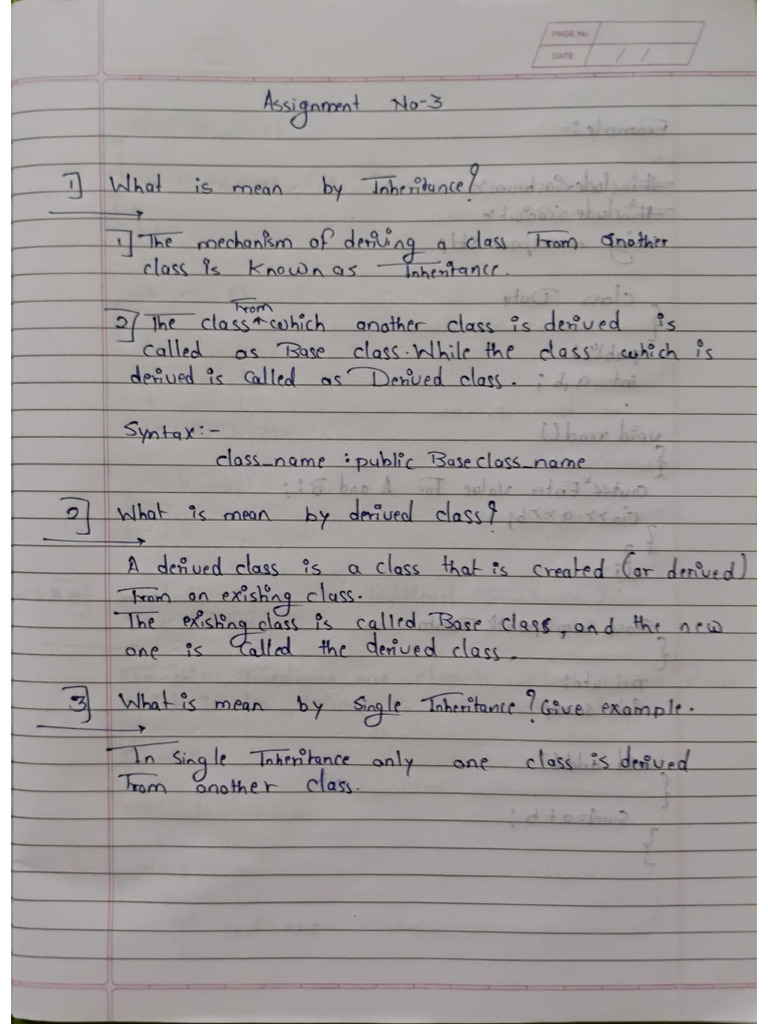 PAGE No.
DATE / /
Assignment No-3
1] What is mean by Inheritance?
1] The mechanism of deriving a class From another
class is Known as Inheritance.
From
2] The class ^ which another class is derived is
called as Base class. While the class which is
derived is called as Derived class.
Syntax:-
class_name : public Baseclass_name
2] What is mean by derived class?
A derived class is a class that is created (or derived)
From an existing class.
The existing class is called Base class, and the new
one is Called the derived class.
3] What is mean by Single Inheritance? Give example.
In single Inheritance only one class is derived
From another class.